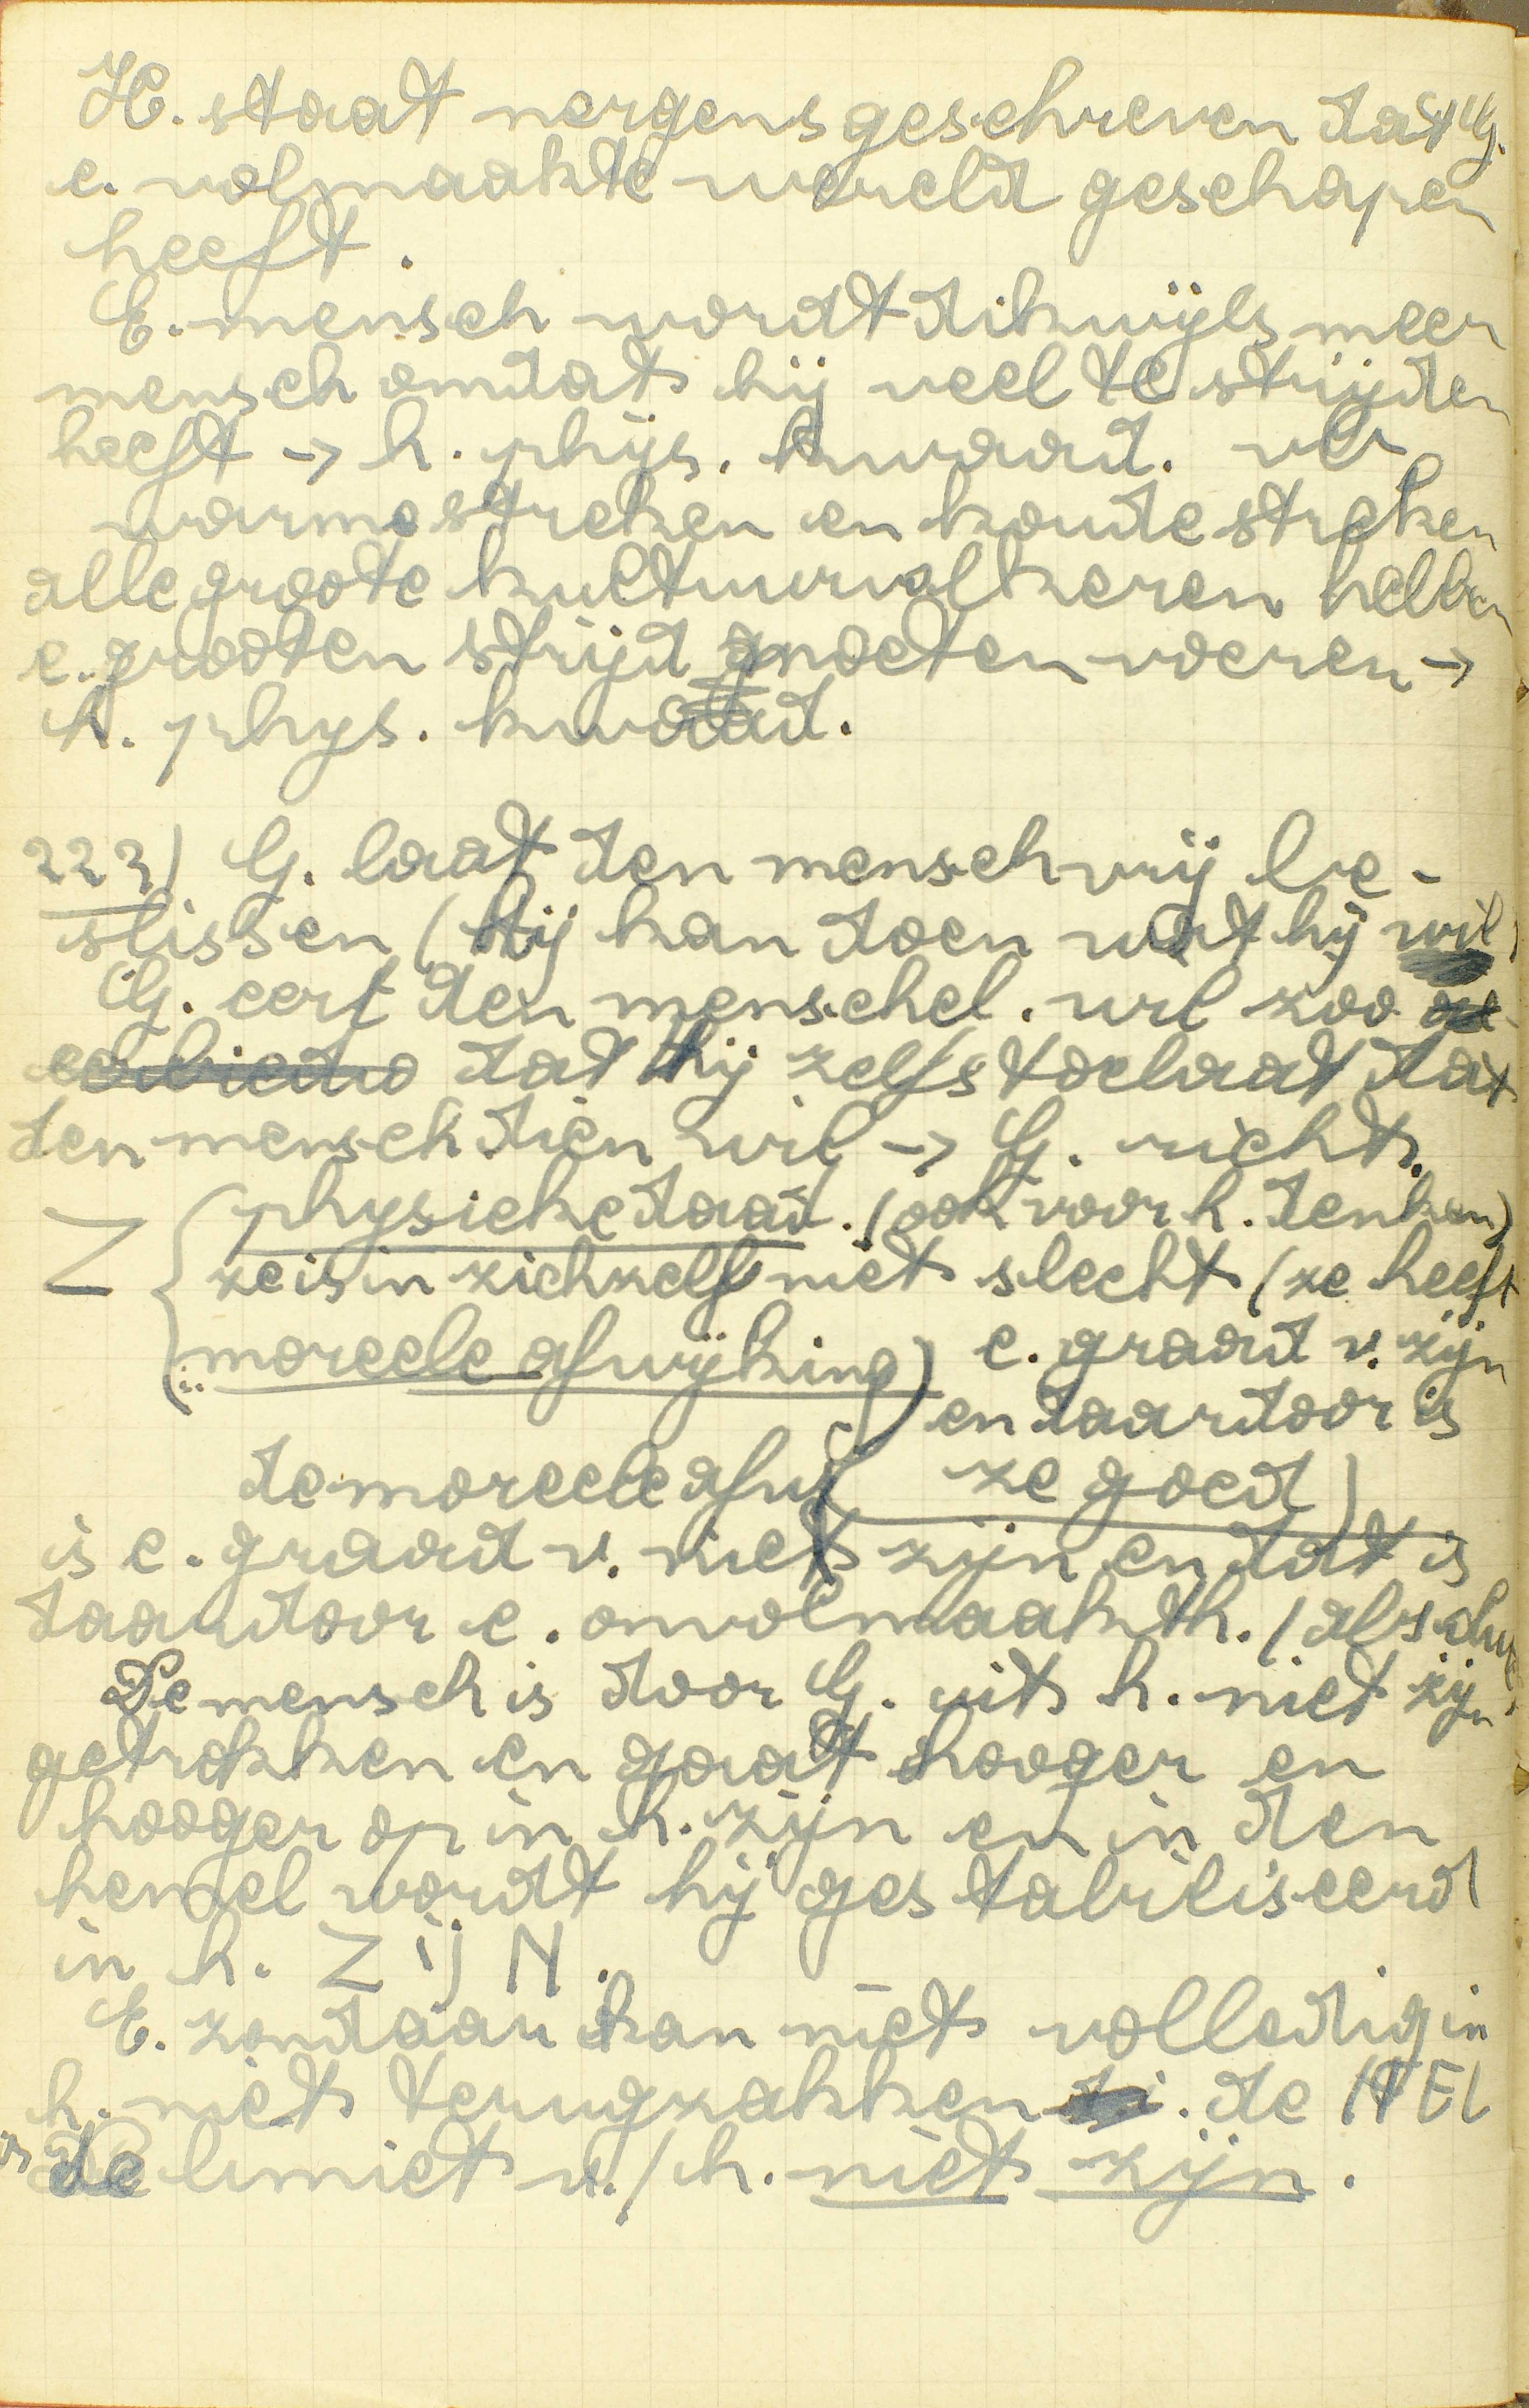 H. staat nergens geschreven dat G.
e. volmaakte wereld geschapen
heeft.
E. mensch wordt dikwijls meer
mensch omdat hij veel te strijden
heeft → h. phys. kwaad. vb
warme streken en koude streken
alle groote kultuurvolkeren hebben
e. grooten strijd moeten voeren →
h. phys. kwaad.
222) G. laat den mensch vrij be-
slissen (hij kan doen wat hij wil)
G. eert den menschel. wil zoo
dat hij zelfs toelaat dat
den mensch dien wil → G. richt.
Z { physieke daad. (ook voor h. denken)
ze is in zichzelf niet slecht (ze heeft
moreele afwijking) e. graad v. zijn
en daardoor is
de moreele afw ze goed)
is e. graad v. niet zijn en dat is
daardoor e. onvolmaakth. (
De mensch is door G. uit h. niet zijn
getrokken en gaat hooger en
hooger op in h. zijn en in den
hemel wordt hij gestabiliseerd
in h. ZIJN.
E. zondaar kan niet volledig in
h. niet terugzakken. de HEL
is de limiet v./h. niet zijn.